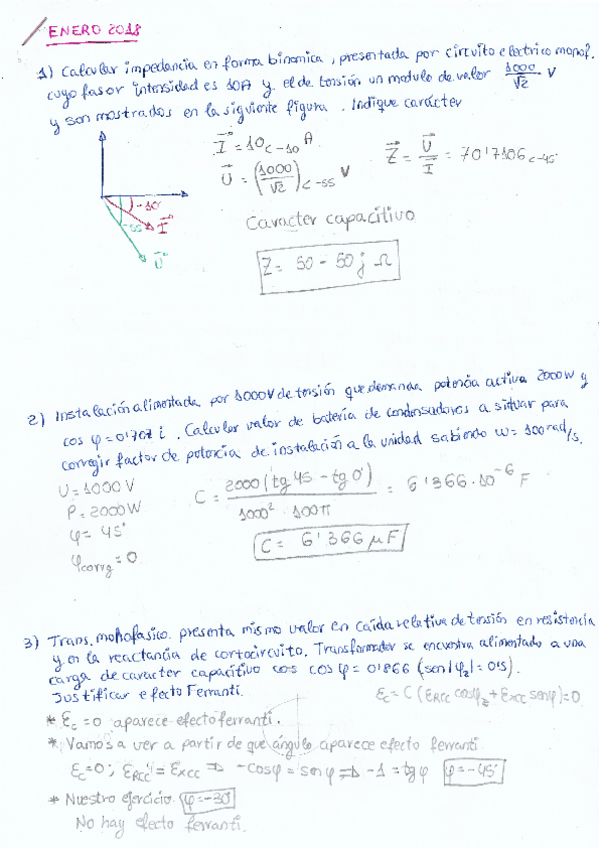 ENERO 2018
1) Calcular impedancia en forma binomica, presentada por circuito electrico monof.
cuyo fasor intensidad es 10A y el de tensión un modulo de valor 1000/√2 V
y son mostrados en la siguiente figura. Indique carácter
I = 10∠-10 A
U = (1000/√2)∠-55 V
Z = U/I = 70'7106∠-45°
-10°
-55
I
U
Caracter capacitivo
Z = 50 - 50j Ω
2) Instalación alimentada por 1000V de tensión que demanda potencia activa 2000W y
cos φ = 0'707 i. Calcular valor de batería de condensadores a situar para
corregir factor de potencia de instalación a la unidad sabiendo ω = 100 rad/s.
U = 1000 V
P = 2000W
φ = 45°
φcorrg = 0
C = 2000 (tg 45 - tg 0°) / 1000² · 100π = 6'366·10⁻⁶ F
C = 6'366 μF
3) Trans. monofasico. presenta mismo valor en caída relativa de tensión en resistencia
y en la reactancia de cortocircuito. Transformador se encuentra alimentado a una
carga de caracter capacitivo cos cos φ = 0'866 (sen|φ₂| = 0'5).
Justificar efecto Ferranti.
Ɛc = C (ƐRcc cosφ₂ + ƐXcc senφ) = 0
* Ɛc = 0 aparece efecto ferranti.
* Vamos a ver a partir de que ángulo aparece efecto ferranti
Ɛc = 0; ƐRcc = ƐXcc ⇒ -cosφ = senφ ⇒ -1 = tgφ φ = -45°
* Nuestro ejercicio φ = -30°
No hay efecto ferranti.